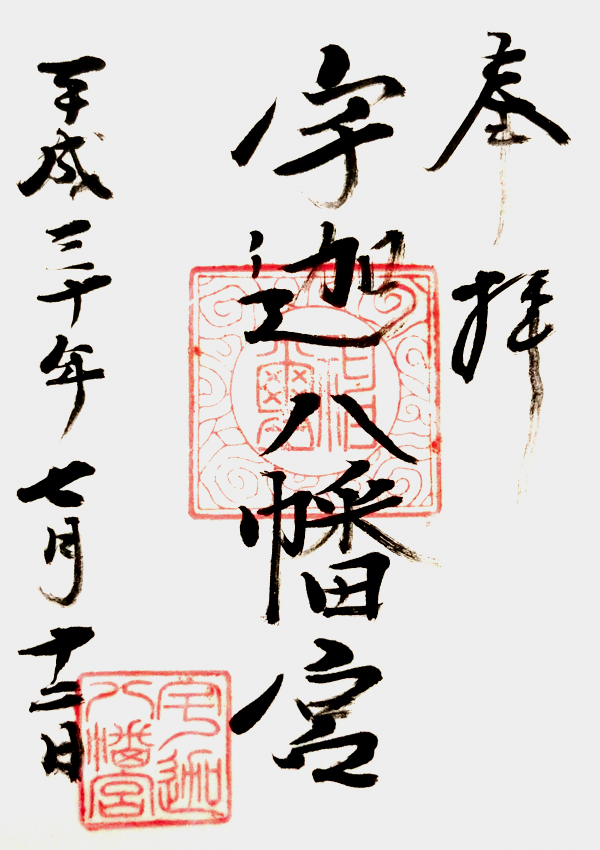 奉拝
宇迦八幡宮
平成三十年七月十二日
宇迦
八幡宮